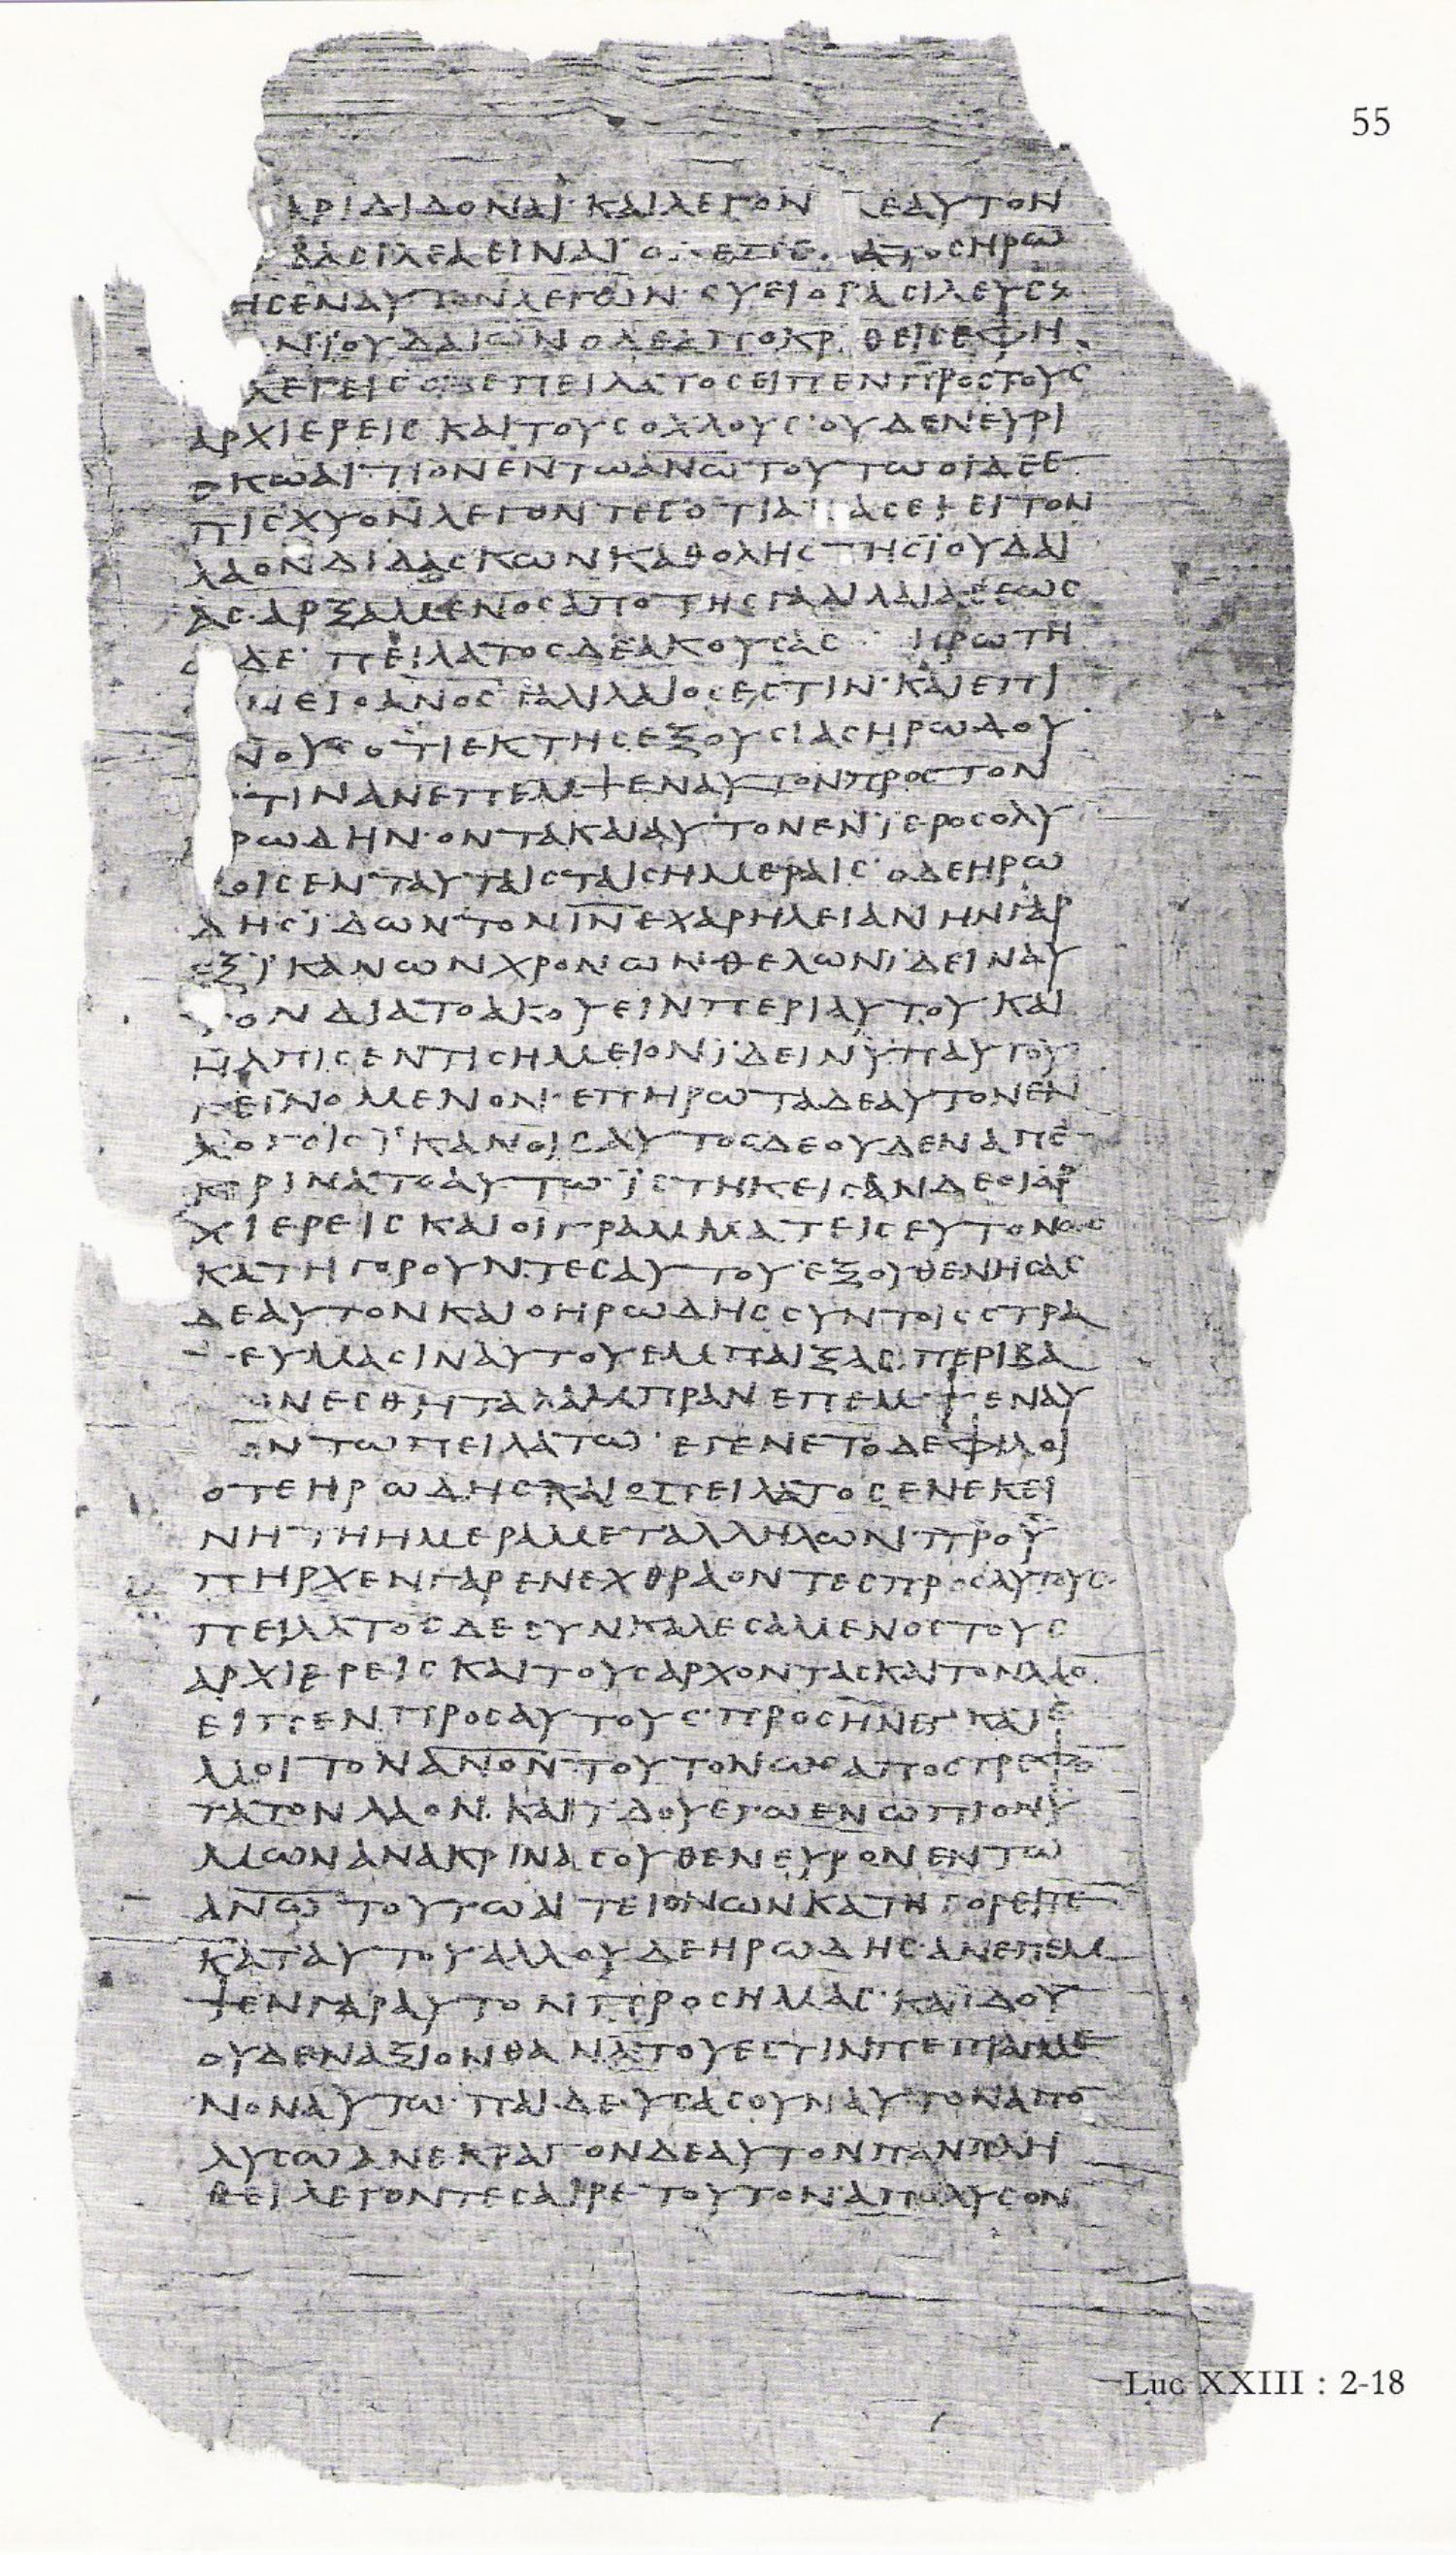 55
ΑΡΙΔΙΔΟΝΑΙ·ΚΑΙΛΕΓΟΝ ΕΑΥΤΟΝ
ΒΑϹΙΛΕΑΕΙΝΑΙ ΑΤΟϹΗΡΩ
ΗϹΕΝΑΥΤΟΝΛΕΓΩΝ·ϹΥΕΙΟΒΑϹΙΛΕΥϹ
ΝΪΟΥΔΑΙΩΝΟΔΕΑΠΟΚΡ ΘΕΙϹΕΦΗ
ΛΕΓΕΙϹΟΔΕΠΕΙΛΑΤΟϹΕΙΠΕΝΠΡΟϹΤΟΥϹ
ΑΡΧΙΕΡΕΙϹΚΑΙΤΟΥϹΟΧΛΟΥϹ·ΟΥΔΕΝΕΥΡΙ
ϹΚΩΑΙΤΙΟΝΕΝΤΩΑΝΩ̅ΤΟΥΤΩΟΙΔΕΕ
ΠΙϹΧΥΟΝΛΕΓΟΝΤΕϹΟΤΙΑΝΑϹΕΙΕΙΤΟΝ
ΛΑΟΝΔΙΔΑϹΚΩΝΚΑΘΟΛΗϹΤΗϹΪΟΥΔΑΙ
ΑϹ·ΑΡΞΑΜΕΝΟϹΑΠΟΤΗϹΓΑΛΙΛΑΙΑϹΕΩϹ
ΩΔΕ·ΠΕΙΛΑΤΟϹΔΕΑΚΟΥϹΑϹ ΗΡΩΤΗ
ΝΕΙΟΑΝΟϹΓΑΛΙΛΑΙΟϹΕϹΤΙΝ·ΚΑΙΕΠΙ
ΝΟΥϹΟΤΙΕΚΤΗϹΕΞΟΥϹΙΑϹΗΡΩΔΟΥ
ΤΙΝΑΝΕΠΕΜΨΕΝΑΥΤΟΝΠΡΟϹΤΟΝ
ΡΩΔΗΝ·ΟΝΤΑΚΑΙΑΥΤΟΝΕΝΪΕΡΟϹΟΛΥ
ΟΙϹΕΝΤΑΥΤΑΙϹΤΑΙϹΗΜΕΡΑΙϹ·ΟΔΕΗΡΩ
ΔΗϹΪΔΩΝΤΟΝΙ̅Ν̅ΕΧΑΡΗΛΕΙΑΝΗΝΓΑΡ
ΕΞΪΚΑΝΩΝΧΡΟΝΩΝΘΕΛΩΝΪΔΕΙΝΑΥ
ΤΟΝΔΙΑΤΟΑΚΟΥΕΙΝΠΕΡΙΑΥΤΟΥΚΑΙ
ΗΛΠΙϹΕΝΤΙϹΗΜΕΙΟΝΪΔΕΙΝΫΠΑΥΤΟΥ
ΓΕΙΝΟΜΕΝΟΝ·ΕΠΗΡΩΤΑΔΕΑΥΤΟΝΕΝ
ΛΟΓΟΙϹΪΚΑΝΟΙϹΑΥΤΟϹΔΕΟΥΔΕΝΑΠΕ
ΚΡΙΝΑΤΟΑΥΤΩ·ΪϹΤΗΚΕΙϹΑΝΔΕΟΙΑΡ
ΧΙΕΡΕΙϹΚΑΙΟΙΓΡΑΜΜΑΤΕΙϹΕΥΤΟΝΩϹ
ΚΑΤΗΓΟΡΟΥΝΤΕϹΑΥΤΟΥ·ΕΞΟΥΘΕΝΗϹΑϹ
ΔΕΑΥΤΟΝΚΑΙΟΗΡΩΔΗϹϹΥΝΤΟΙϹϹΤΡΑ
ΤΕΥΜΑϹΙΝΑΥΤΟΥΕΜΠΑΙΞΑϹΠΕΡΙΒΑ
ΩΝΕϹΘΗΤΑΛΑΜΠΡΑΝΕΠΕΜΨΕΝΑΥ
ΟΝΤΩΠΕΙΛΑΤΩ·ΕΓΕΝΕΤΟΔΕΦΙΛΟΙ
ΟΤΕΗΡΩΔΗϹΚΑΙΟΠΕΙΛΑΤΟϹΕΝΕΚΕΙ
ΝΗΤΗΗΜΕΡΑΜΕΤΑΛΛΗΛΩΝ·ΠΡΟΫ
ΠΗΡΧΕΝΓΑΡΕΝΕΧΘΡΑΟΝΤΕϹΠΡΟϹΑΥΤΟΥϹ·
ΠΕΙΛΑΤΟϹΔΕϹΥΝΚΑΛΕϹΑΜΕΝΟϹΤΟΥϹ
ΑΡΧΙΕΡΕΙϹΚΑΙΤΟΥϹΑΡΧΟΝΤΑϹΚΑΙΤΟΝΛΑΟ
ΕΙΠΕΝΠΡΟϹΑΥΤΟΥϹ·ΠΡΟϹΗΝΕΓΚΑΤΕ
ΜΟΙΤΟΝΑΝΟΝΤΟΥΤΟΝΩϹΑΠΟϹΤΡΕΦΟ
ΤΑΤΟΝΛΑΟΝ·ΚΑΙΪΔΟΥΕΓΩΕΝΩΠΙΟΝΫ
ΜΩΝΑΝΑΚΡΙΝΑϹΟΥΘΕΝΕΥΡΟΝΕΝΤΩ
ΑΝΩ̅ΤΟΥΤΩΑΙΤΕΙΟΝΩΝΚΑΤΗΓΟΡΕΙΤΕ
ΚΑΤΑΥΤΟΥ·ΑΛΛΟΥΔΕΗΡΩΔΗϹ·ΑΝΕΠΕΜ
ΨΕΝΓΑΡΑΥΤΟΝΠΡΟϹΗΜΑϹ·ΚΑΙΪΔΟΥ
ΟΥΔΕΝΑΞΙΟΝΘΑΝΑΤΟΥΕϹΤΙΝΠΕΠΡΑΓΜΕ
ΝΟΝΑΥΤΩ·ΠΑΙΔΕΥϹΑϹΟΥΝΑΥΤΟΝΑΠΟ
ΛΥϹΩΑΝΕΚΡΑΓΟΝΔΕΑΥΤΟΝΠΑΝΠΛΗ
ΘΕΙΛΕΓΟΝΤΕϹΑΙΡΕΤΟΥΤΟΝΑΠΟΛΥϹΟΝ
Luc XXIII : 2-18